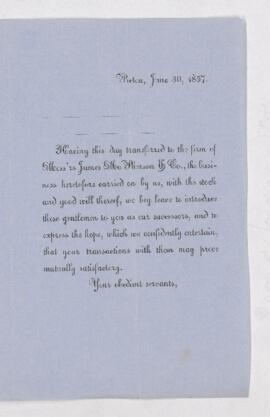 Pictou, June 30, 1857.
Having this day transferred to the firm of
Mess'rs James Mc Pherson & Co., the busi-
ness heretofore carried on by us, with the stock
and good will thereof, we beg leave to introduce
these gentlemen to you as our successors, and to
express the hope, which we confidently entertain,
that your transactions with them may prove
mutually satisfactory.
Your obedient servants,